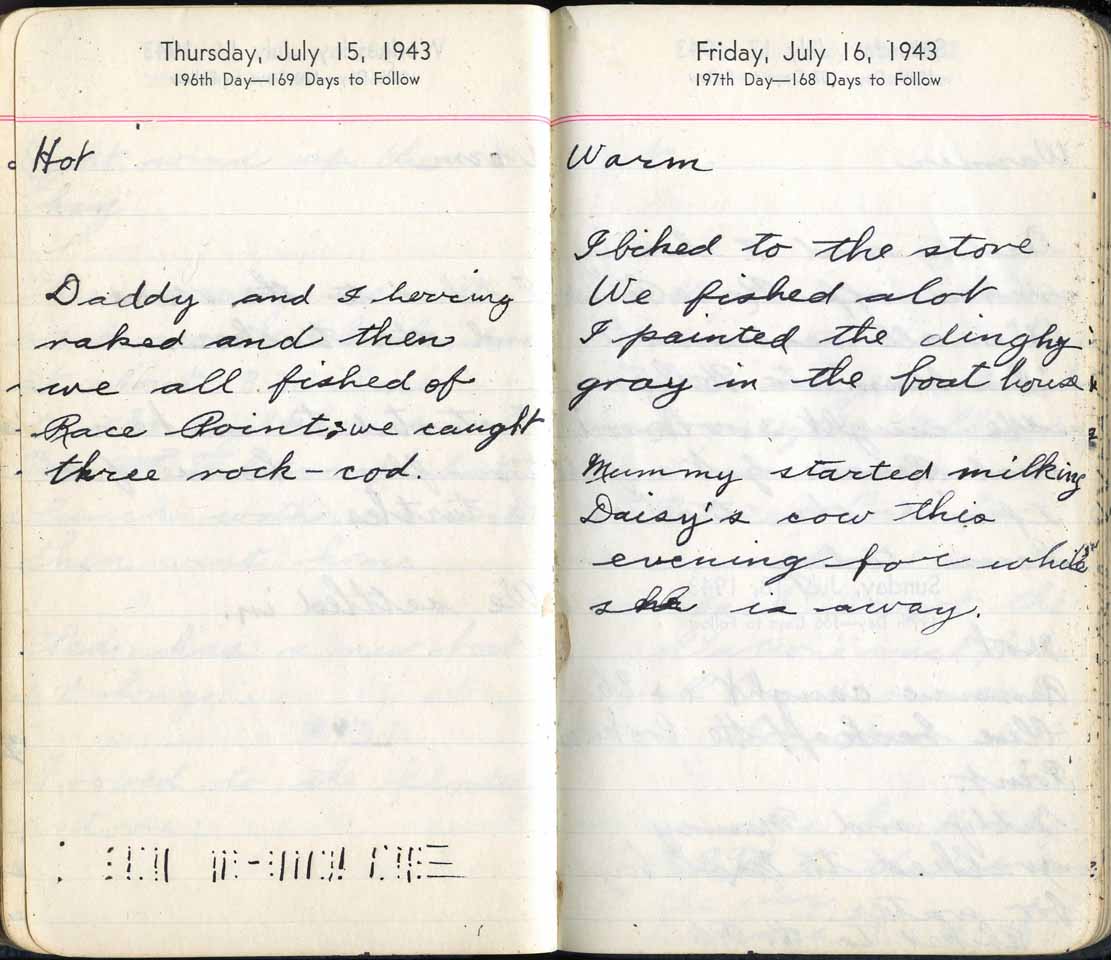 Thursday, July 15, 1943
196th Day—169 Days to Follow
Hot
Daddy and I herring
raked and then
we all fished of
Race Point; we caught
three rock-cod.
Friday, July 16, 1943
197th Day—168 Days to Follow
Warm
I biked to the store
We fished alot
I painted the dinghy
gray in the boat house
Mummy started milking
Daisy's cow this
evening for while
she is away.